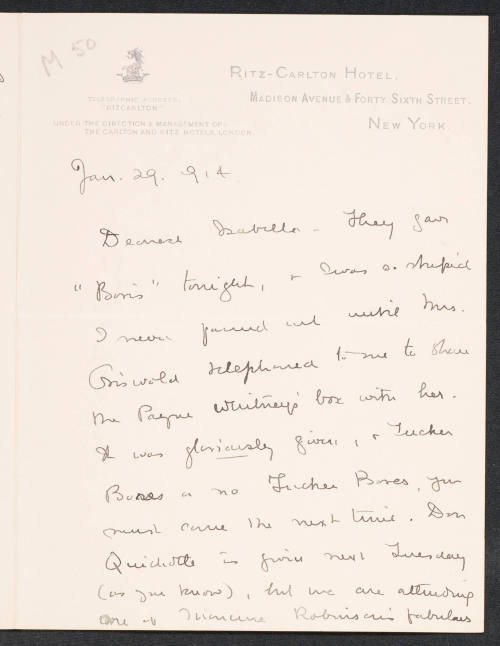 M 50
RITZ-CARLTON HOTEL.
MADISON AVENUE & FORTY SIXTH STREET.
NEW YORK.
TELEGRAPHIC ADDRESS,
"RITZCARLTON"
UNDER THE DIRECTION & MANAGEMENT OF:
THE CARLTON AND RITZ HOTELS, LONDON.
Jan. 29. 914
Dearest Isabella - They gave
"Boris" tonight, & I was so stupid
I never found out until Mrs.
Griswold telephoned to me to share
the Payne Whitney's box with her.
It was gloriously given, & Tucker
Boxes or no Tucker Boxes, you
must come the next time. Don
Quichotte is given next Tuesday
(as you know), but we are attending
one of Robinson's fabulous